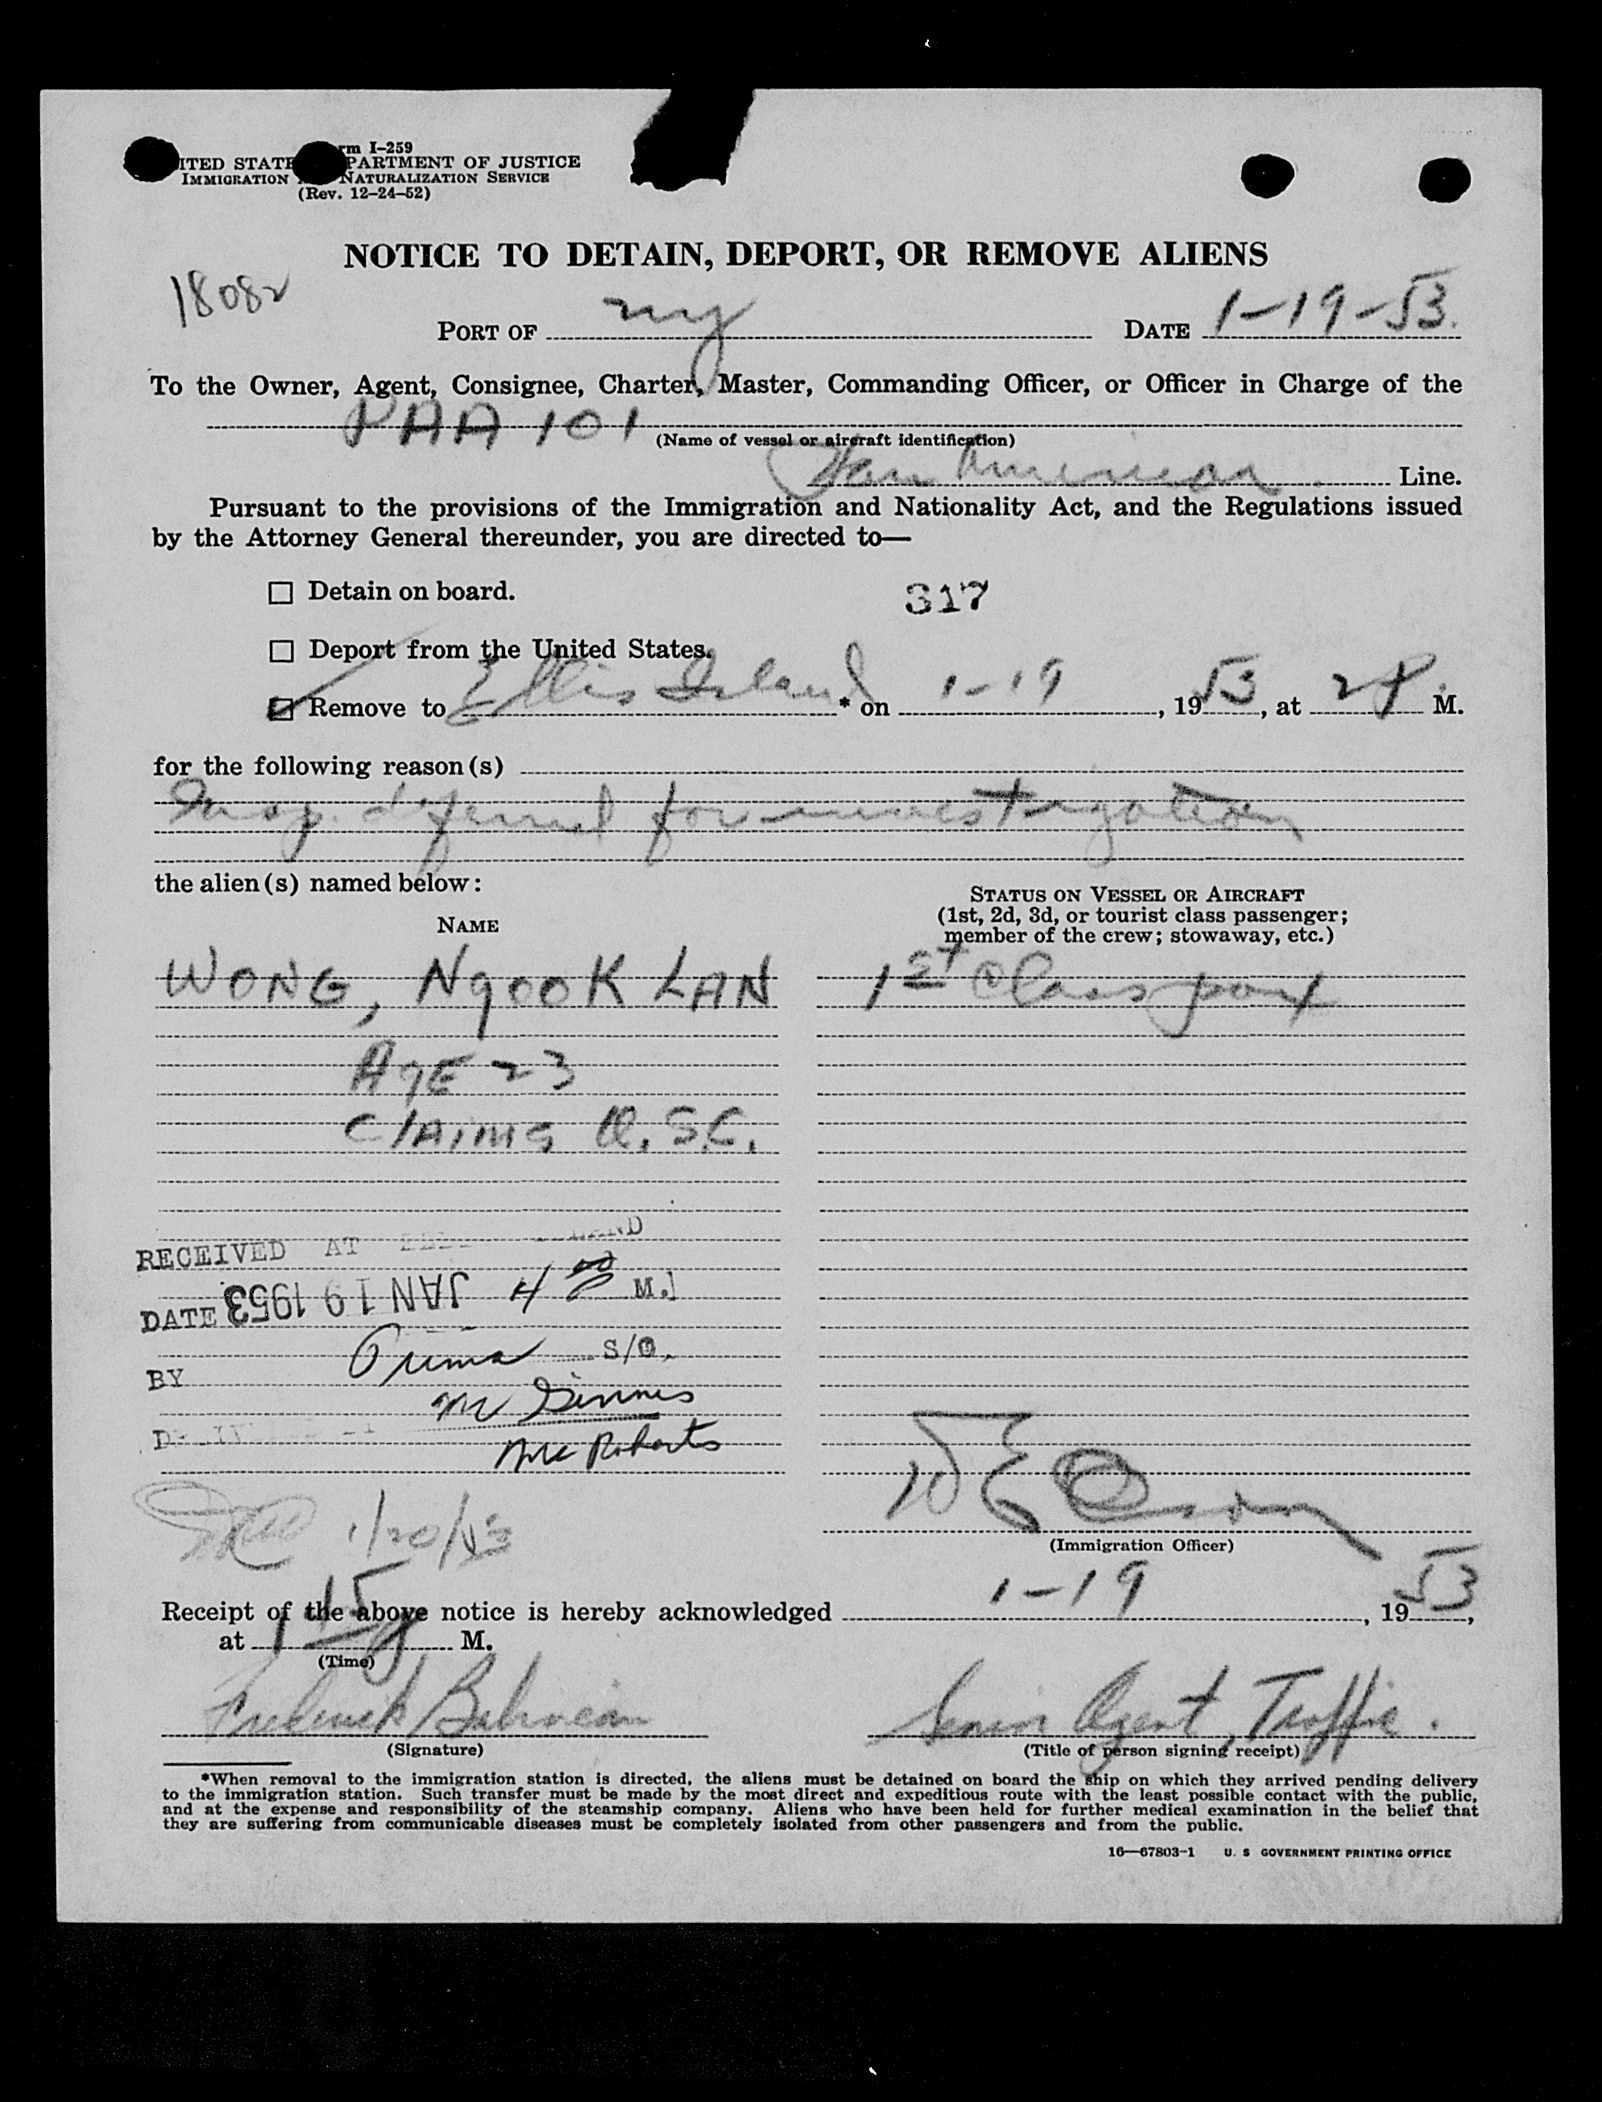 rm I-259
ITED STATE PARTMENT OF JUSTICE
IMMIGRATION NATURALIZATION SERVICE
(Rev. 12-24-52)
NOTICE TO DETAIN, DEPORT, OR REMOVE ALIENS
18082
PORT OF ny DATE 1-19-53.
To the Owner, Agent, Consignee, Charter, Master, Commanding Officer, or Officer in Charge of the
PAA 101
(Name of vessel or aircraft identification)
Pan American Line.
Pursuant to the provisions of the Immigration and Nationality Act, and the Regulations issued
by the Attorney General thereunder, you are directed to—
☐ Detain on board.
317
☐ Deport from the United States.
☑ Remove to Ellis Island * on 1-19, 1953, at 2 P. M.
for the following reason(s)
Insp. deferred for investigation
the alien(s) named below:
NAME
STATUS ON VESSEL OR AIRCRAFT
(1st, 2d, 3d, or tourist class passenger;
member of the crew; stowaway, etc.)
WONG, NgooK LAN 1st Class pax
AgE 23
CLAIMS U.S.C.
RECEIVED AT
DATE JAN 19 1953 4 00 M.
BY Prima S/O.
Mc Ginnis
Mc Roberts
1/20/53
(Immigration Officer)
Receipt of the above notice is hereby acknowledged 1-19, 1953,
at 1 15 P M.
(Time)
Frederick
(Signature)
Senior Agent, Traffic.
(Title of person signing receipt)
*When removal to the immigration station is directed, the aliens must be detained on board the ship on which they arrived pending delivery
to the immigration station. Such transfer must be made by the most direct and expeditious route with the least possible contact with the public,
and at the expense and responsibility of the steamship company. Aliens who have been held for further medical examination in the belief that
they are suffering from communicable diseases must be completely isolated from other passengers and from the public.
16—67803-1 U. S GOVERNMENT PRINTING OFFICE